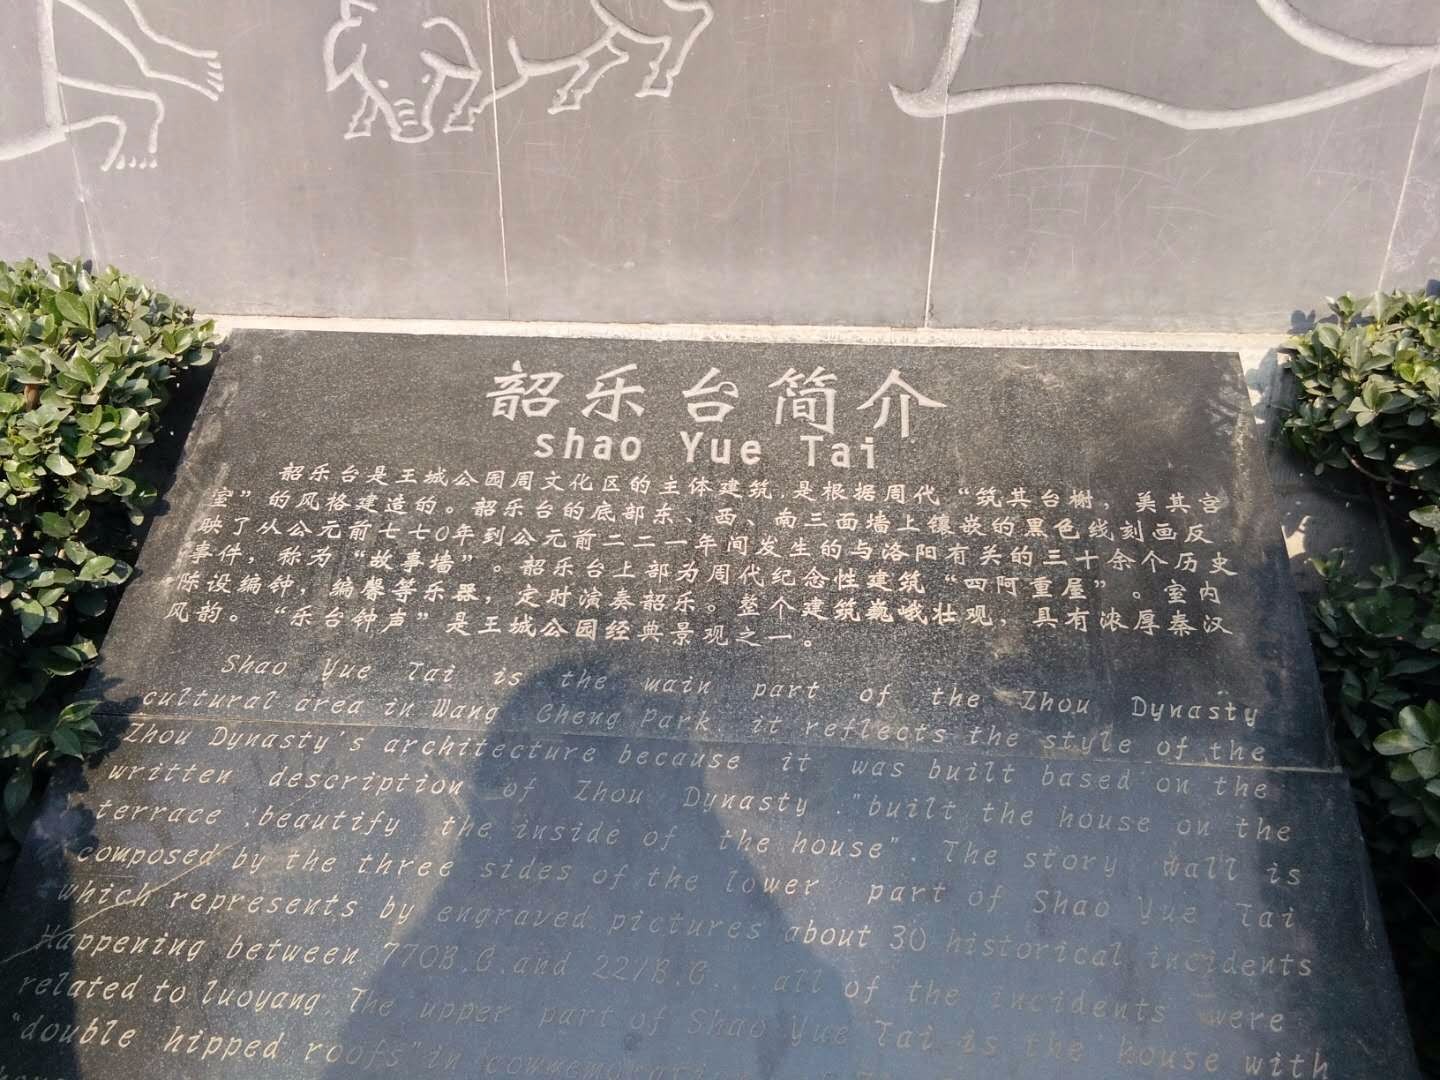 韶乐台简介
shao Yue Tai
韶乐台是王城公园周文化区的主体建筑,是根据周代“筑其台榭,美其宫
室”的风格建造的。韶乐台的底部东、西、南三面墙上镶嵌的黑色线刻画反
映了从公元前七七0年到公元前二二一年间发生的与洛阳有关的三十余个历史
事件,称为“故事墙”。韶乐台上部为周代纪念性建筑“四阿重屋”。室内
陈设编钟,编磬等乐器,定时演奏韶乐。整个建筑巍峨壮观,具有浓厚秦汉
风韵。“乐台钟声”是王城公园经典景观之一。
Shao Yue Tai is the main part of the Zhou Dynasty
cultural area in Wang Cheng Park it reflects the style of the
Zhou Dynasty's architecture because it was built based on the
written description of Zhou Dynasty ."built the house on the
terrace ;beautify the inside of the house". The story wall is
composed by the three sides of the lower part of Shao Yue Tai
which represents by engraved pictures about 30 historical incidents
Happening between 770B.C.and 221B.C... all of the incidents were
related to luoyang. The upper part of Shao Yue Tai is the house with
"double hipped roofs"in